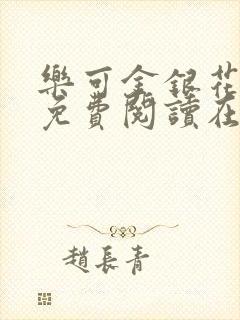 樂可金銀花
免費閱讀在
趙長青